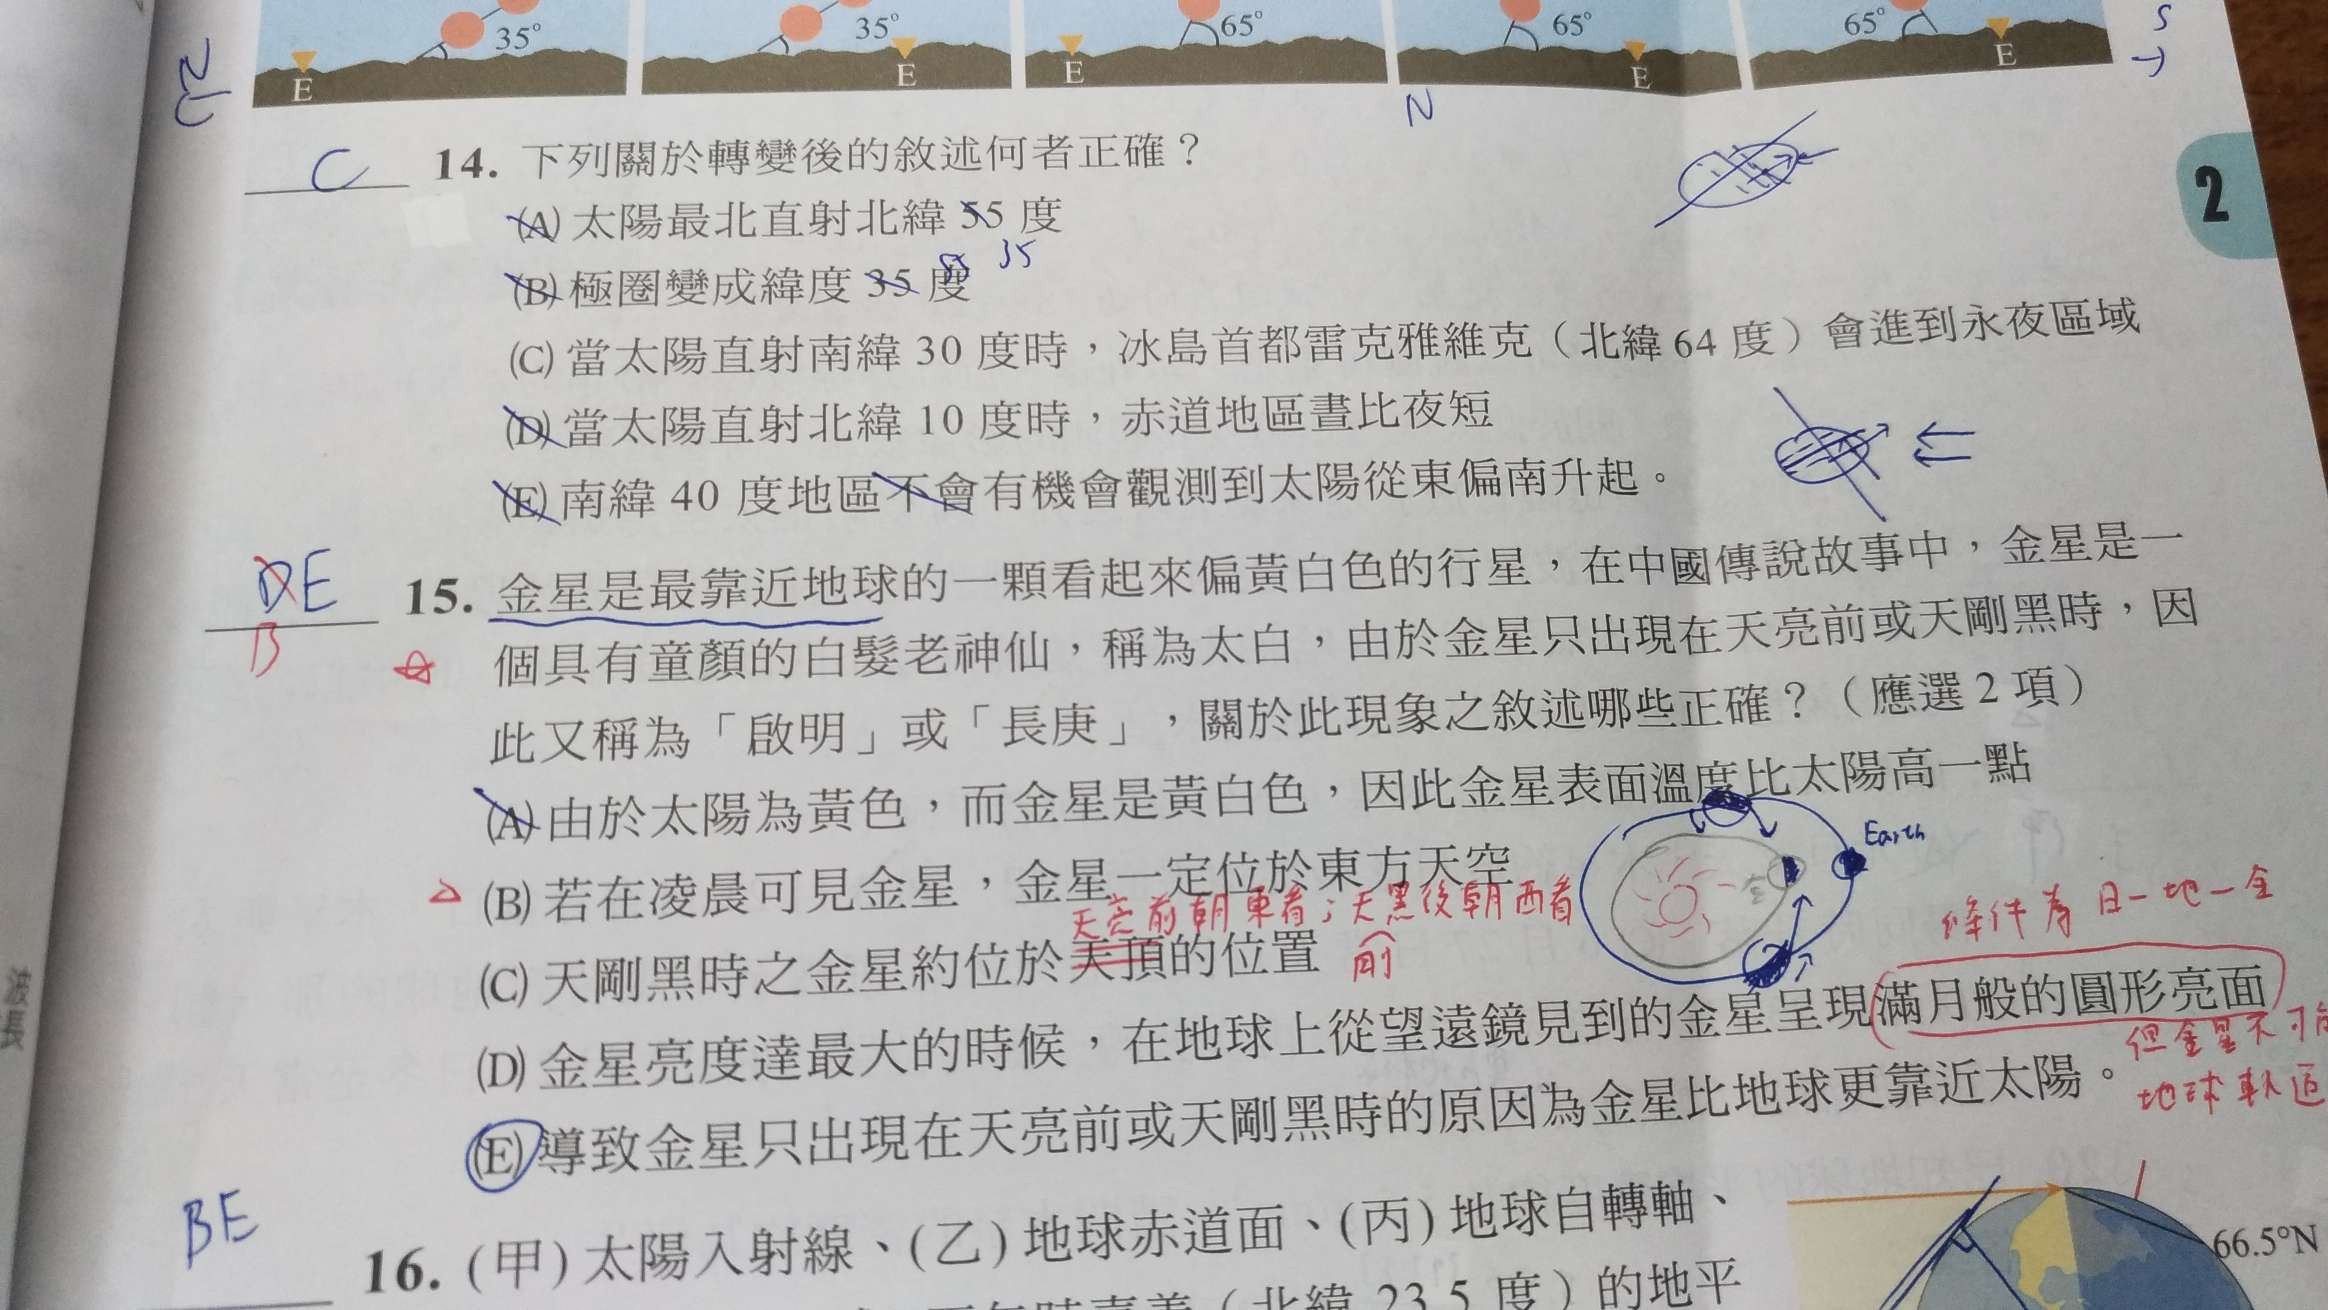 35°
35°
65°
65°
65°
E
E
E
E
E
S
N
2
C
14. 下列關於轉變後的敘述何者正確？
(A) 太陽最北直射北緯 55 度
35
(B) 極圈變成緯度 35 度
55
(C) 當太陽直射南緯 30 度時，冰島首都雷克雅維克（北緯 64 度）會進到永夜區域
(D) 當太陽直射北緯 10 度時，赤道地區晝比夜短
(E) 南緯 40 度地區不會有機會觀測到太陽從東偏南升起。
DE
B
15. 金星是最靠近地球的一顆看起來偏黃白色的行星，在中國傳說故事中，金星是一
個具有童顏的白髮老神仙，稱為太白，由於金星只出現在天亮前或天剛黑時，因
此又稱為「啟明」或「長庚」，關於此現象之敘述哪些正確？（應選 2 項）
(A) 由於太陽為黃色，而金星是黃白色，因此金星表面溫度比太陽高一點
Earth
(B) 若在凌晨可見金星，金星一定位於東方天空
天亮前朝東看；天黑後朝西看
金
條件為日－地－金
(C) 天剛黑時之金星約位於天頂的位置
前
(D) 金星亮度達最大的時候，在地球上從望遠鏡見到的金星呈現滿月般的圓形亮面
但金星不可
地球軌道
(E) 導致金星只出現在天亮前或天剛黑時的原因為金星比地球更靠近太陽。
波長
BE
16. (甲) 太陽入射線、(乙) 地球赤道面、(丙) 地球自轉軸、
（北緯 23.5 度）的地平
66.5°N